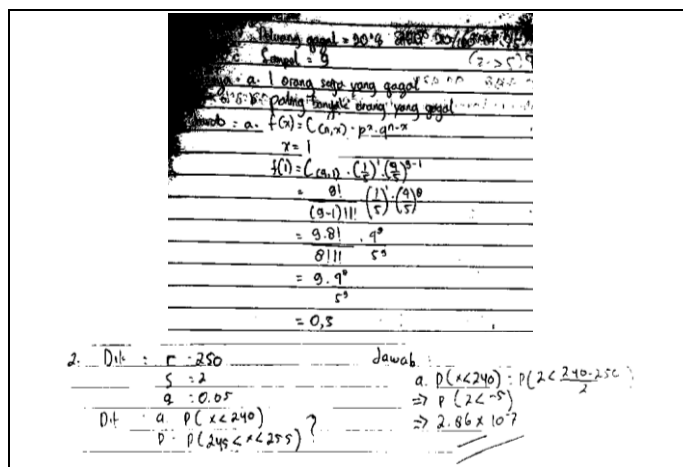 Peluang gagal = 20%
Sampel = 9
a. 1 orang saja yang gagal
paling banyak orang yang gagal
a. f(x) = C(n,x) · pˣ · qⁿ⁻ˣ
x = 1
f(1) = C(9,1) · (1/5)¹ · (4/5)⁹⁻¹
= 9! / (9-1)!1! (1/5)¹ · (4/5)⁸
= 9.8! / 8!1! · 4⁸ / 5⁹
= 9 . 4⁸ / 5⁹
= 0,3
2. Dik : r : 250
s : 2
q : 0.05
Dit a P(x<240)
P(245<x<255) ?
Jawab :
a. P(x<240) : P(z< 240-250 / 2
=> P(z<-5)
=> 2.86 x 10⁻⁷